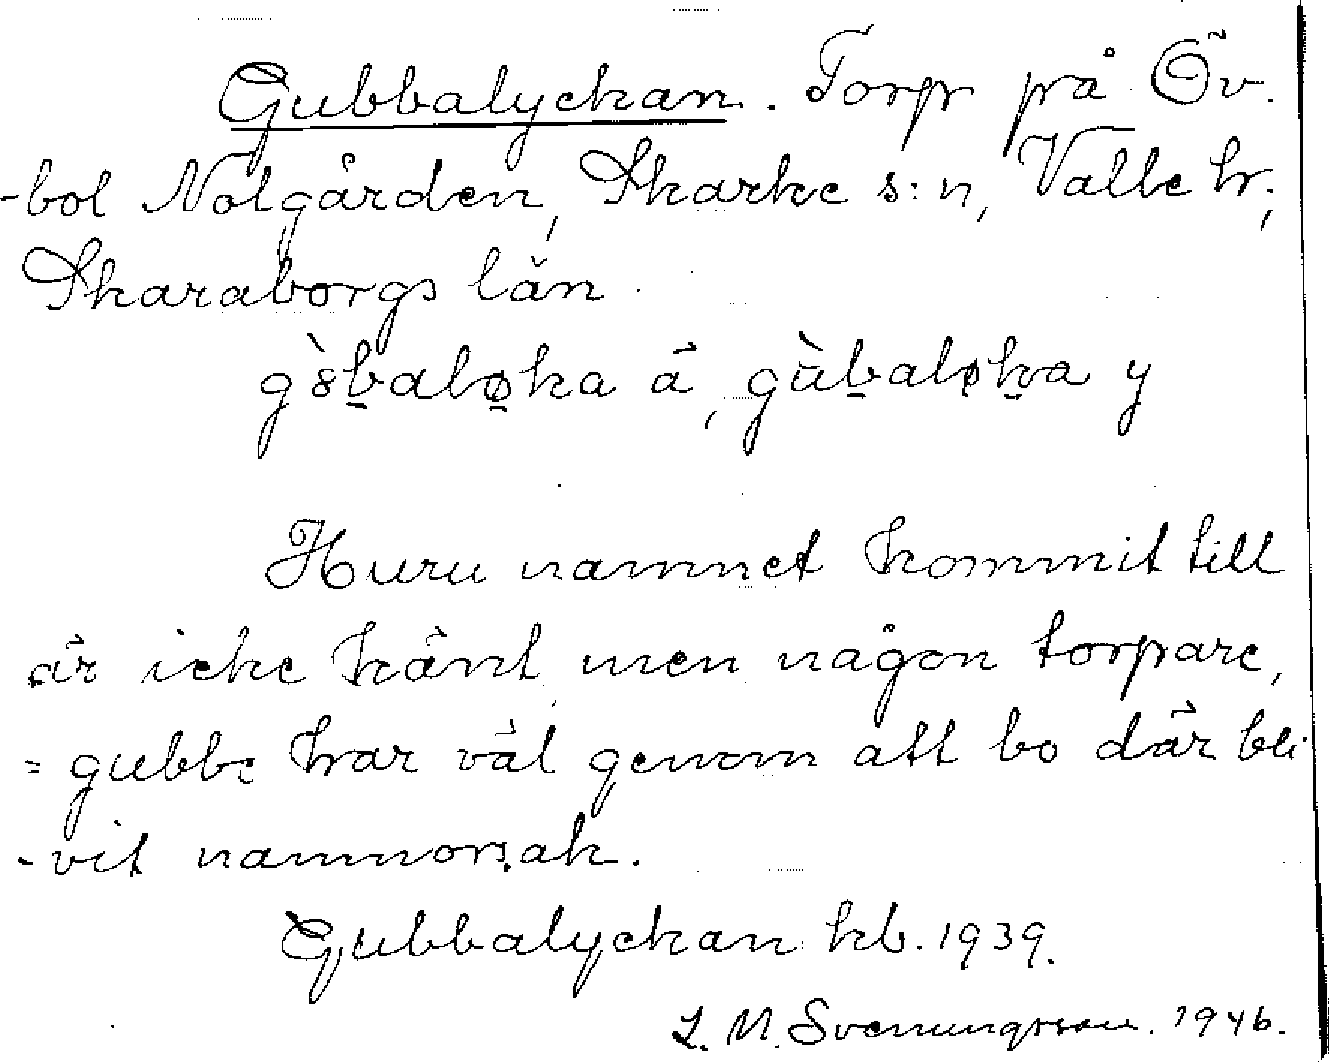 Gubbalyckan. Torp på Öv-
-bol Nolgården, Skarke s:n, Valle hr;
Skaraborgs län.
g8̀b̲alø̲ka ä, gùb̲aløk̲a y
Huru namnet kommit till
är icke känt men någon torpare,
=gubbe har väl genom att bo där bli
-vit namnorsak.
Gubbalyckan kb. 1939.
L. M. Svenungsson. 1946.